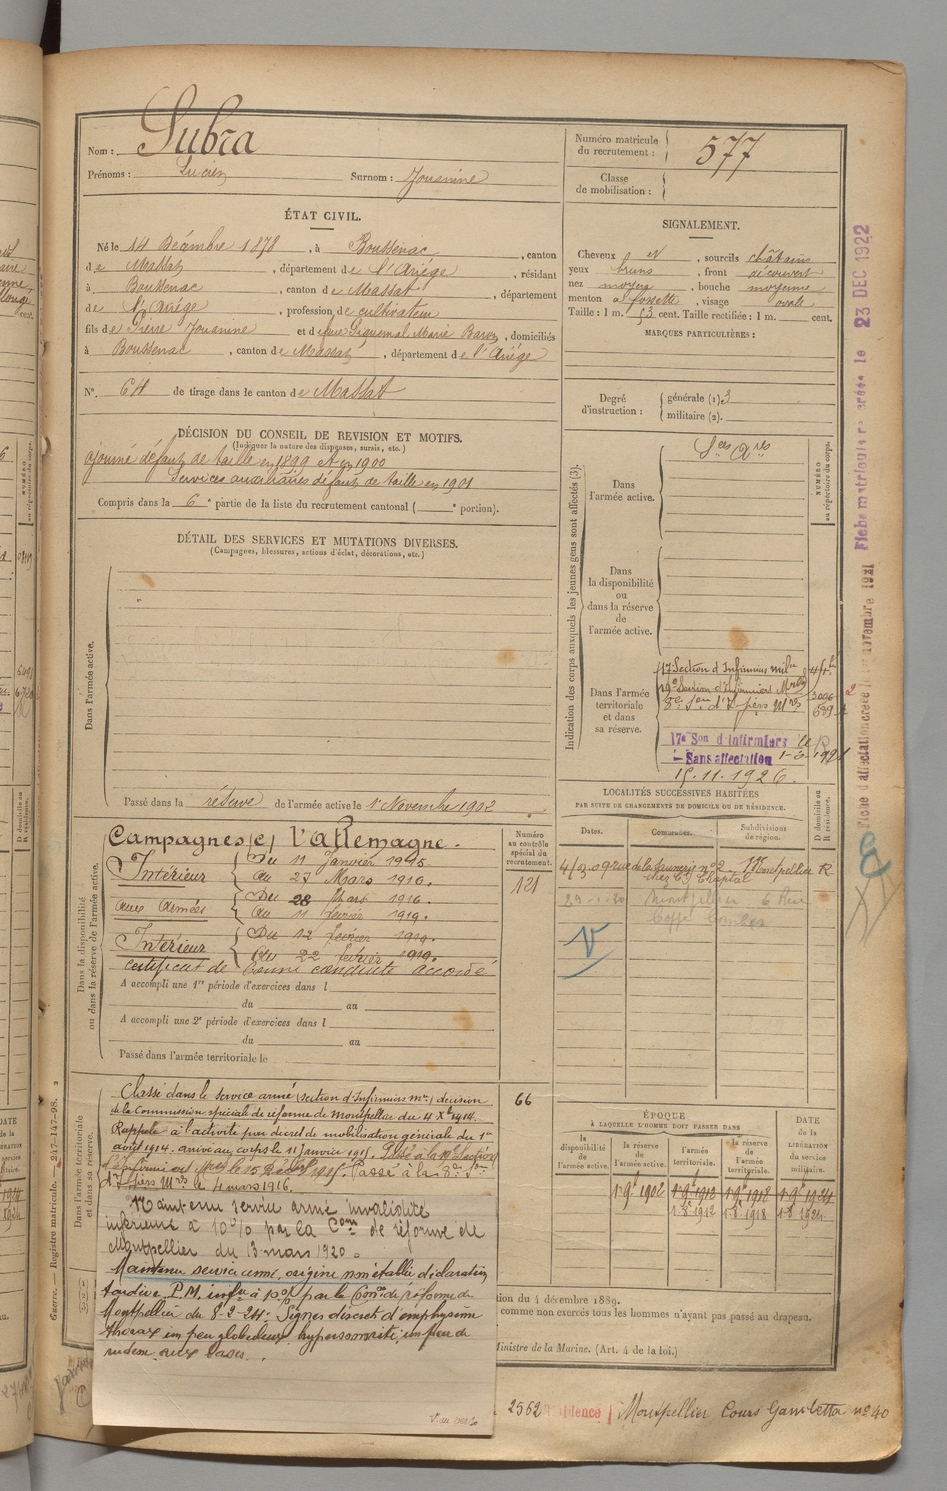 Nom : Subra
Prénoms : Lucien Surnom : Jouanine
ÉTAT CIVIL.
Né le 14 Décembre 1878, à Boussenac, canton
de Massat, département de l'Ariége, résidant
à Boussenac, canton de Massat, département
de l'Ariége, profession de cultivateur
fils de Pierre Jouanine et de feue Piquemal Marie, domiciliés
à Boussenac, canton de Massat, département de l'Ariége
N°. 64 de tirage dans le canton de Massat
DÉCISION DU CONSEIL DE REVISION ET MOTIFS.
(Indiquer la nature des dispenses, sursis, etc.)
ajourné défaut de taille en 1899 et en 1900
Services auxiliaires défaut de taille en 1901
Compris dans la 6e partie de la liste du recrutement cantonal ( e portion).
DÉTAIL DES SERVICES ET MUTATIONS DIVERSES.
(Campagnes, blessures, actions d'éclat, décorations, etc.)
Dans l'armée active.
Passé dans la réserve de l'armée active le 1er Novembre 1902
Dans la disponibilité
ou dans la réserve de l'armée active.
Campagnes (c) l'Allemagne.
Intérieur { Du 11 Janvier 1915.
Au 27 Mars 1916.
aux Armées { Du 28 Mars 1916.
Au 11 février 1919.
Intérieur { Du 12 février 1919.
Au 22 février 1919.
Certificat de bonne conduite accordé
A accompli une 1re période d'exercices dans l
du au
A accompli une 2e période d'exercices dans l
du au
Passé dans l'armée territoriale le
Numéro
au contrôle
spécial du
recrutement.
121
66
Dans l'armée territoriale
et dans sa réserve.
Classé dans le service armé (section d'Infirmiers Mres) décision
de la Commission spéciale de réforme de Montpellier du 4 Xbre 1914.
Rappelé à l'activité par décret de mobilisation générale du 1er
août 1914. arrivé au corps le 11 Janvier 1915. Passé à la Section
d'Infirmiers Passé à la 8e Son
d'Infers Mres le 4 mars 1916.
Maintenu service armé invalidité
inférieure à 10% par la Com de réforme de
Montpellier du 13 mars 1920.
Maintenu service armé, origine non établie déclaration
tardive P.M. infre à 10% par la Com de réforme de
Montpellier du 8-2-24: Signes discrets d'emphysème
thorax un peu globuleux hypersonorité, un peu de
rudesse aux bases.
Guerre. — Registre matricule. — 247-147-98.
Numéro matricule
du recrutement : 577
Classe
de mobilisation :
SIGNALEMENT.
Cheveux et, sourcils châtains
yeux bruns, front découvert
nez moyen, bouche moyenne
menton à fossette, visage ovale
Taille : 1 m. 53 cent. Taille rectifiée : 1 m. cent.
MARQUES PARTICULIÈRES :
Degré
d'instruction :
générale (1) 3
militaire (2).
Indication des corps auxquels les jeunes gens sont affectés (3).
NUMÉRO
au répertoire du corps.
Dans
l'armée active.
Dans
la disponibilité
ou
dans la réserve
de
l'armée active.
Dans l'armée
territoriale
et dans
sa réserve.
17 Section d'Infirmiers milre
Section d'Infirmiers
8e Son d'Infers Mres
17e Son d'Infirmiers
Sans affectation
15.11.1926.
LOCALITÉS SUCCESSIVES HABITÉES
PAR SUITE DE CHANGEMENTS DE DOMICILE OU DE RÉSIDENCE.
Dates. Communes. Subdivisions
de région. D domicile ou
R résidence.
4/3 09 rue de la no 2 Montpellier R
29-1-20 Montpellier 6 Rue
V
ÉPOQUE
À LAQUELLE L'HOMME DOIT PASSER DANS
la
disponibilité
de
l'armée active.
la réserve
de
l'armée active.
l'armée
territoriale.
la réserve
de
l'armée
territoriale.
DATE
de la
LIBÉRATION
du service
militaire.
1 9bre 1902 1 9bre 1912 1 9bre 1918 1 9bre 1924
1 8bre 1912 1 8bre 1918 1 8bre 1924
tion du 4 décembre 1889.
comme non exercés tous les hommes n'ayant pas passé au drapeau.
Ministre de la Marine. (Art. 4 de la loi.)
2562 Montpellier Cours Gambetta no 40
Fiche matricule créée le 23 DEC 1922